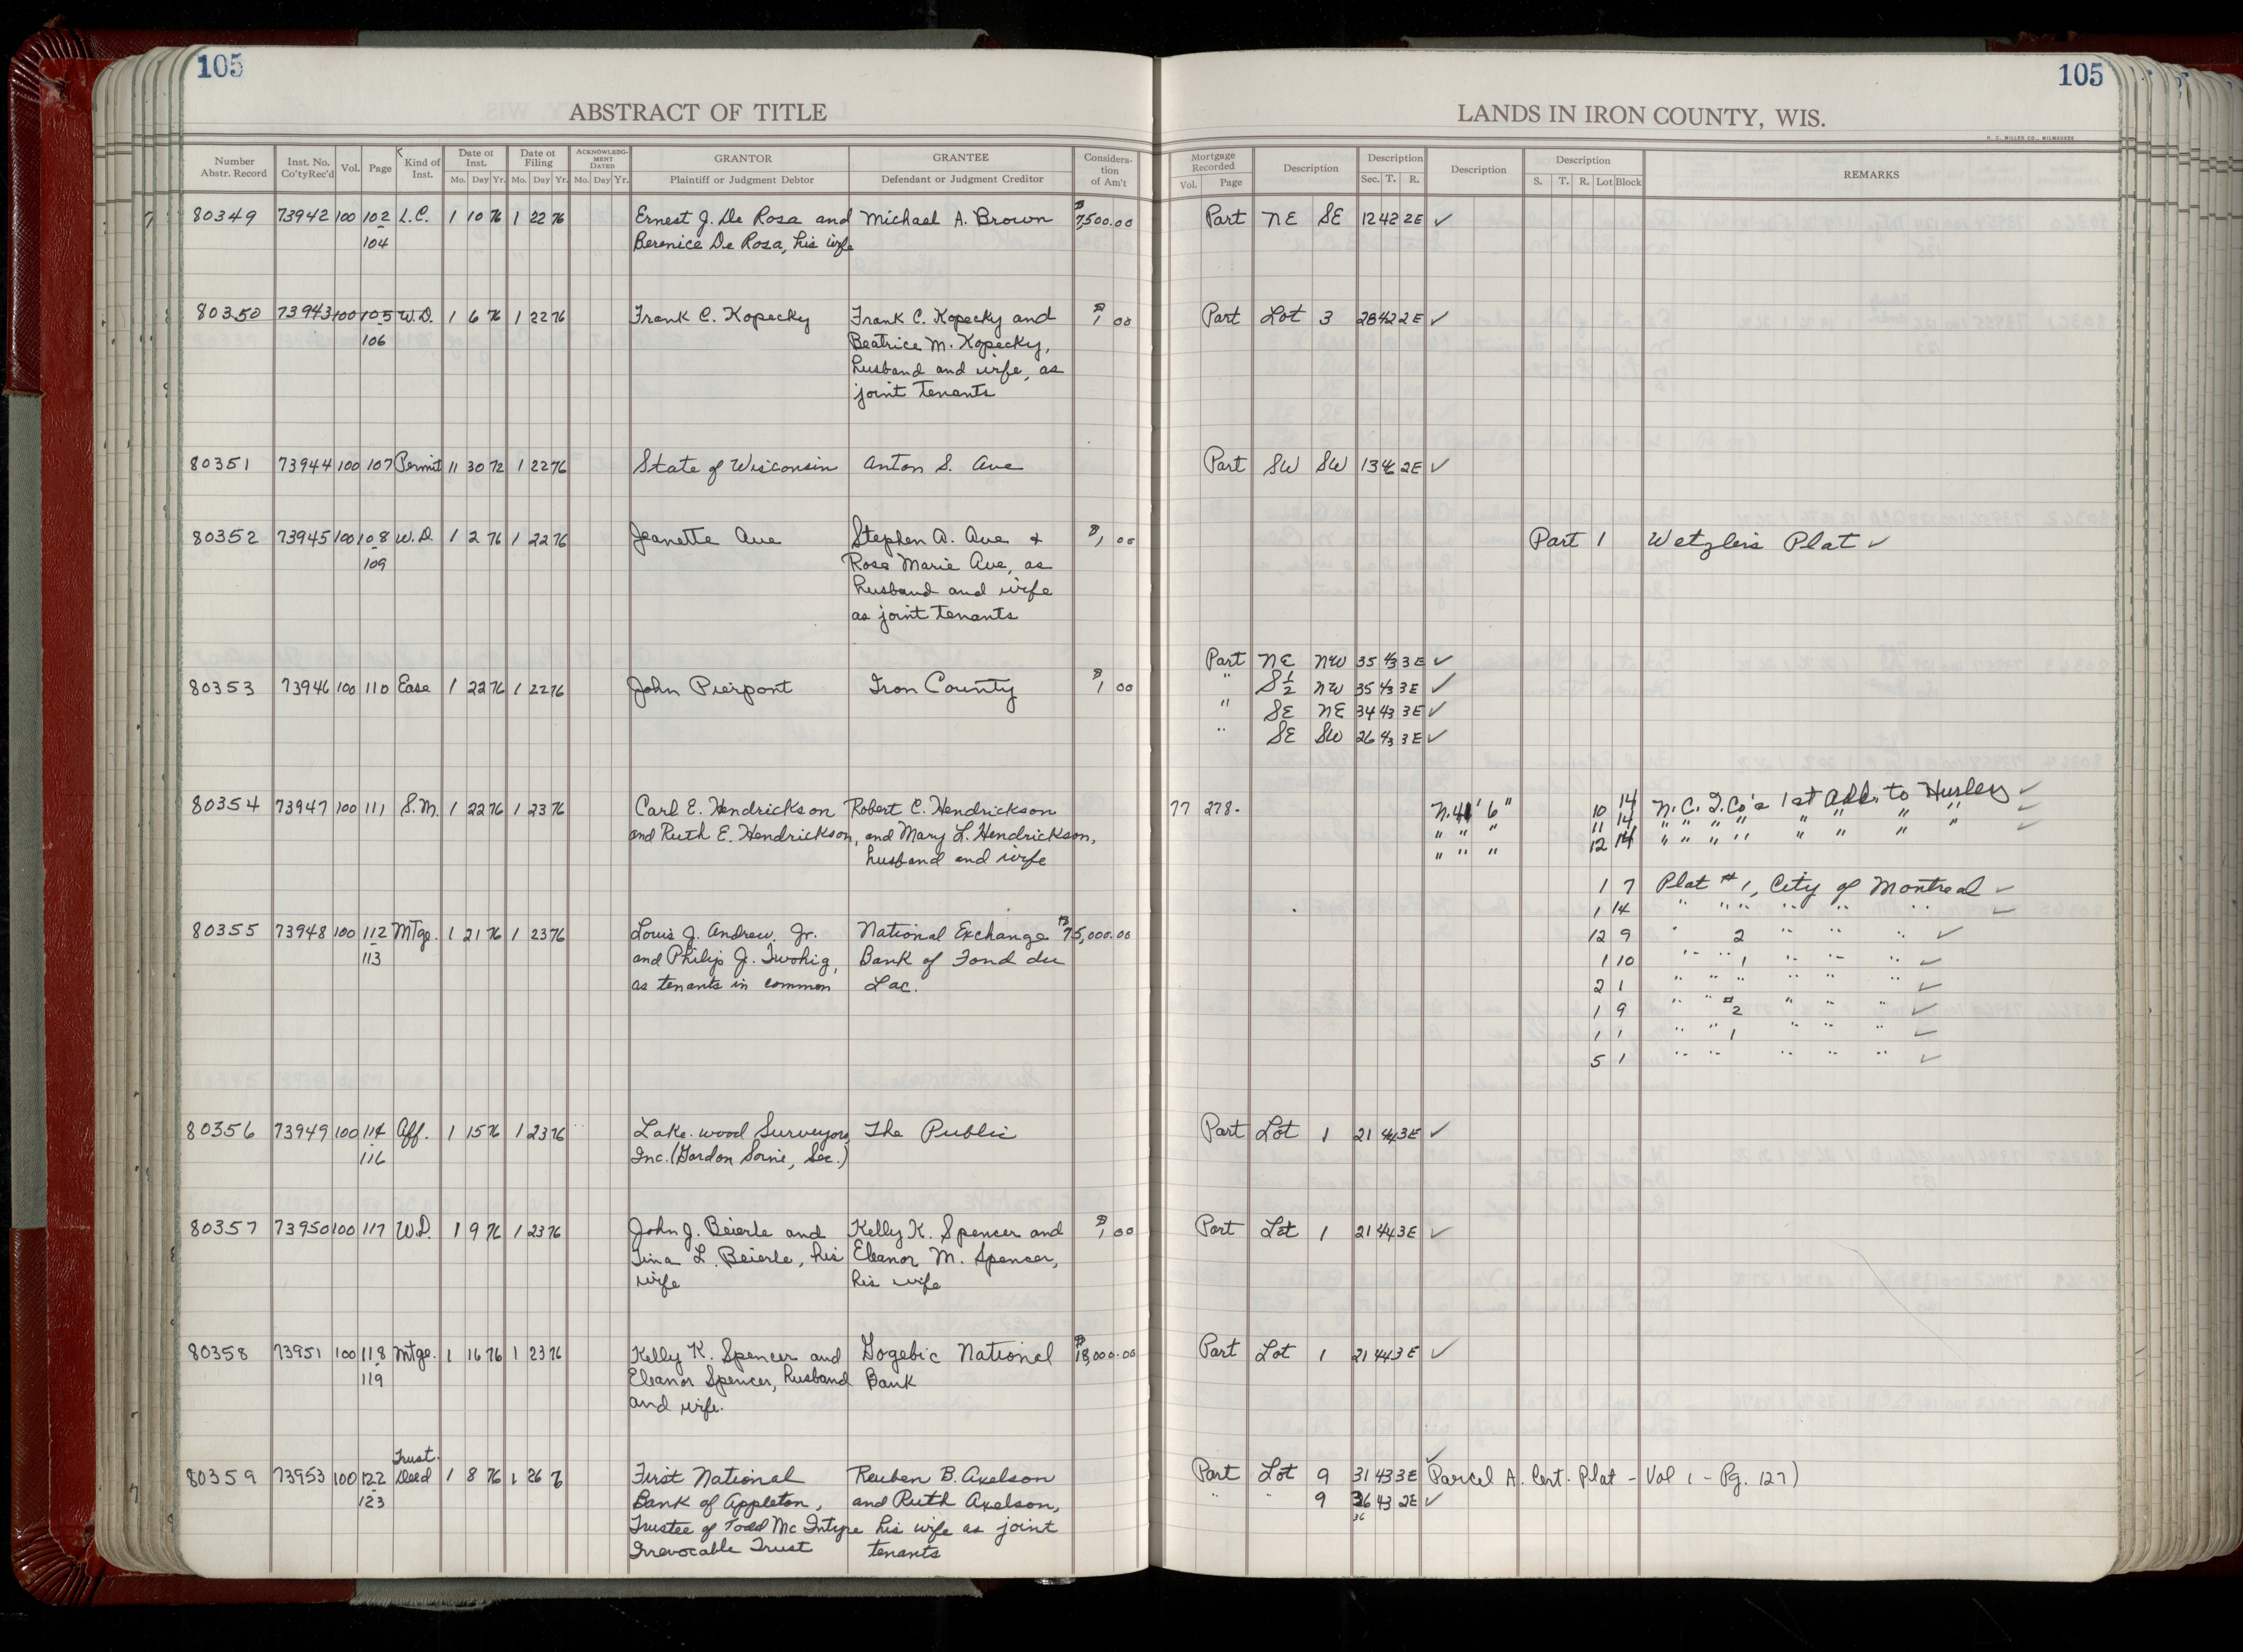 105
105
ABSTRACT OF TITLE
LANDS IN IRON COUNTY, WIS.
H. C. MILLER CO., MILWAUKEE
Number Abstr. Record | Inst. No. Co'tyRec'd | Vol. | Page | Kind of Inst. | Date of Inst. Mo. Day Yr. | Date of Filing Mo. Day Yr. | ACKNOWLEDGMENT DATED Mo. Day Yr. | GRANTOR Plaintiff or Judgment Debtor | GRANTEE Defendant or Judgment Creditor | Consideration of Am't | Mortgage Recorded Vol. Page | Description | Description Sec. T. R. | Description | Description S. T. R. Lot Block | REMARKS
80349 73942 100 102 L.C. 1 10 76 1 22 76 Ernest J. De Rosa and Michael A. Brown $7,500.00 Part NE SE 12 42 2E ✓
- 104 Berenice De Rosa, his wife
80350 73943 100 105 W.D. 1 6 76 1 22 76 Frank C. Kopecky Frank C. Kopecky and $1 00 Part Lot 3 28 42 2E ✓
- 106 Beatrice M. Kopecky,
husband and wife, as
joint tenants
80351 73944 100 107 Permit 11 30 72 1 22 76 State of Wisconsin Anton S. Ave Part SW SW 13 46 2E ✓
80352 73945 100 108 W.D. 1 2 76 1 22 76 Jeanette Ave Stephen A. Ave + $1 00 Part 1 Wetzler's Plat ✓
- 109 Rose Marie Ave, as
husband and wife
as joint tenants
Part NE NW 35 43 3E ✓
80353 73946 100 110 Ease 1 22 76 1 22 76 John Pierpont Iron County $1 00 " S½ NW 35 43 3E ✓
" SE NE 34 43 3E ✓
" SE SW 26 43 3E ✓
80354 73947 100 111 S.M. 1 22 76 1 23 76 Carl E. Hendrickson Robert C. Hendrickson 77 278- N.41' 6" 10 14 N.C.I.Co's 1st Add. to Hurley ✓
and Ruth E. Hendrickson, and Mary L. Hendrickson, " " " 11 14 " " " " " " " " ✓
husband and wife " " " 12 14 " " " " " " " " ✓
1 7 Plat #1, City of Montreal ✓
1 14 " " " " " " ✓
80355 73948 100 112 Mtge. 1 21 76 1 23 76 Louis J. Andrew, Jr. National Exchange $75,000.00 12 9 " 2 " " " ✓
- 113 and Philip J. Twohig, Bank of Fond du 1 10 " " 1 " " " ✓
as tenants in common Lac. 2 1 " " " " " " ✓
1 9 " " #2 " " " ✓
1 1 " " 1 " " " ✓
5 1 " " " " " ✓
80356 73949 100 114 Aff. 1 15 76 1 23 76 Lake-wood Surveyors, The Public Part Lot 1 21 44 3E ✓
- 116 Inc. (Gordon Sorne, Sec.)
80357 73950 100 117 W.D. 1 9 76 1 23 76 John J. Beierle and Kelly K. Spencer and $1 00 Part Lot 1 21 44 3E ✓
Tina L. Beierle, his Eleanor M. Spencer,
wife his wife
80358 73951 100 118 Mtge. 1 16 76 1 23 76 Kelly K. Spencer and Gogebic National $18,000.00 Part Lot 1 21 44 3E ✓
- 119 Eleanor Spencer, husband Bank
and wife.
Trust
80359 73953 100 122 Deed 1 8 76 1 26 76 First National Reuben B. Axelson Part Lot 9 31 43 3E ✓ Parcel A. Cert. Plat - Vol 1 - Pg. 127)
- 123 Bank of Appleton, and Ruth Axelson, " " 9 36 43 2E ✓
36
Trustee of Todd Mc Intyre his wife as joint
Irrevocable Trust tenants